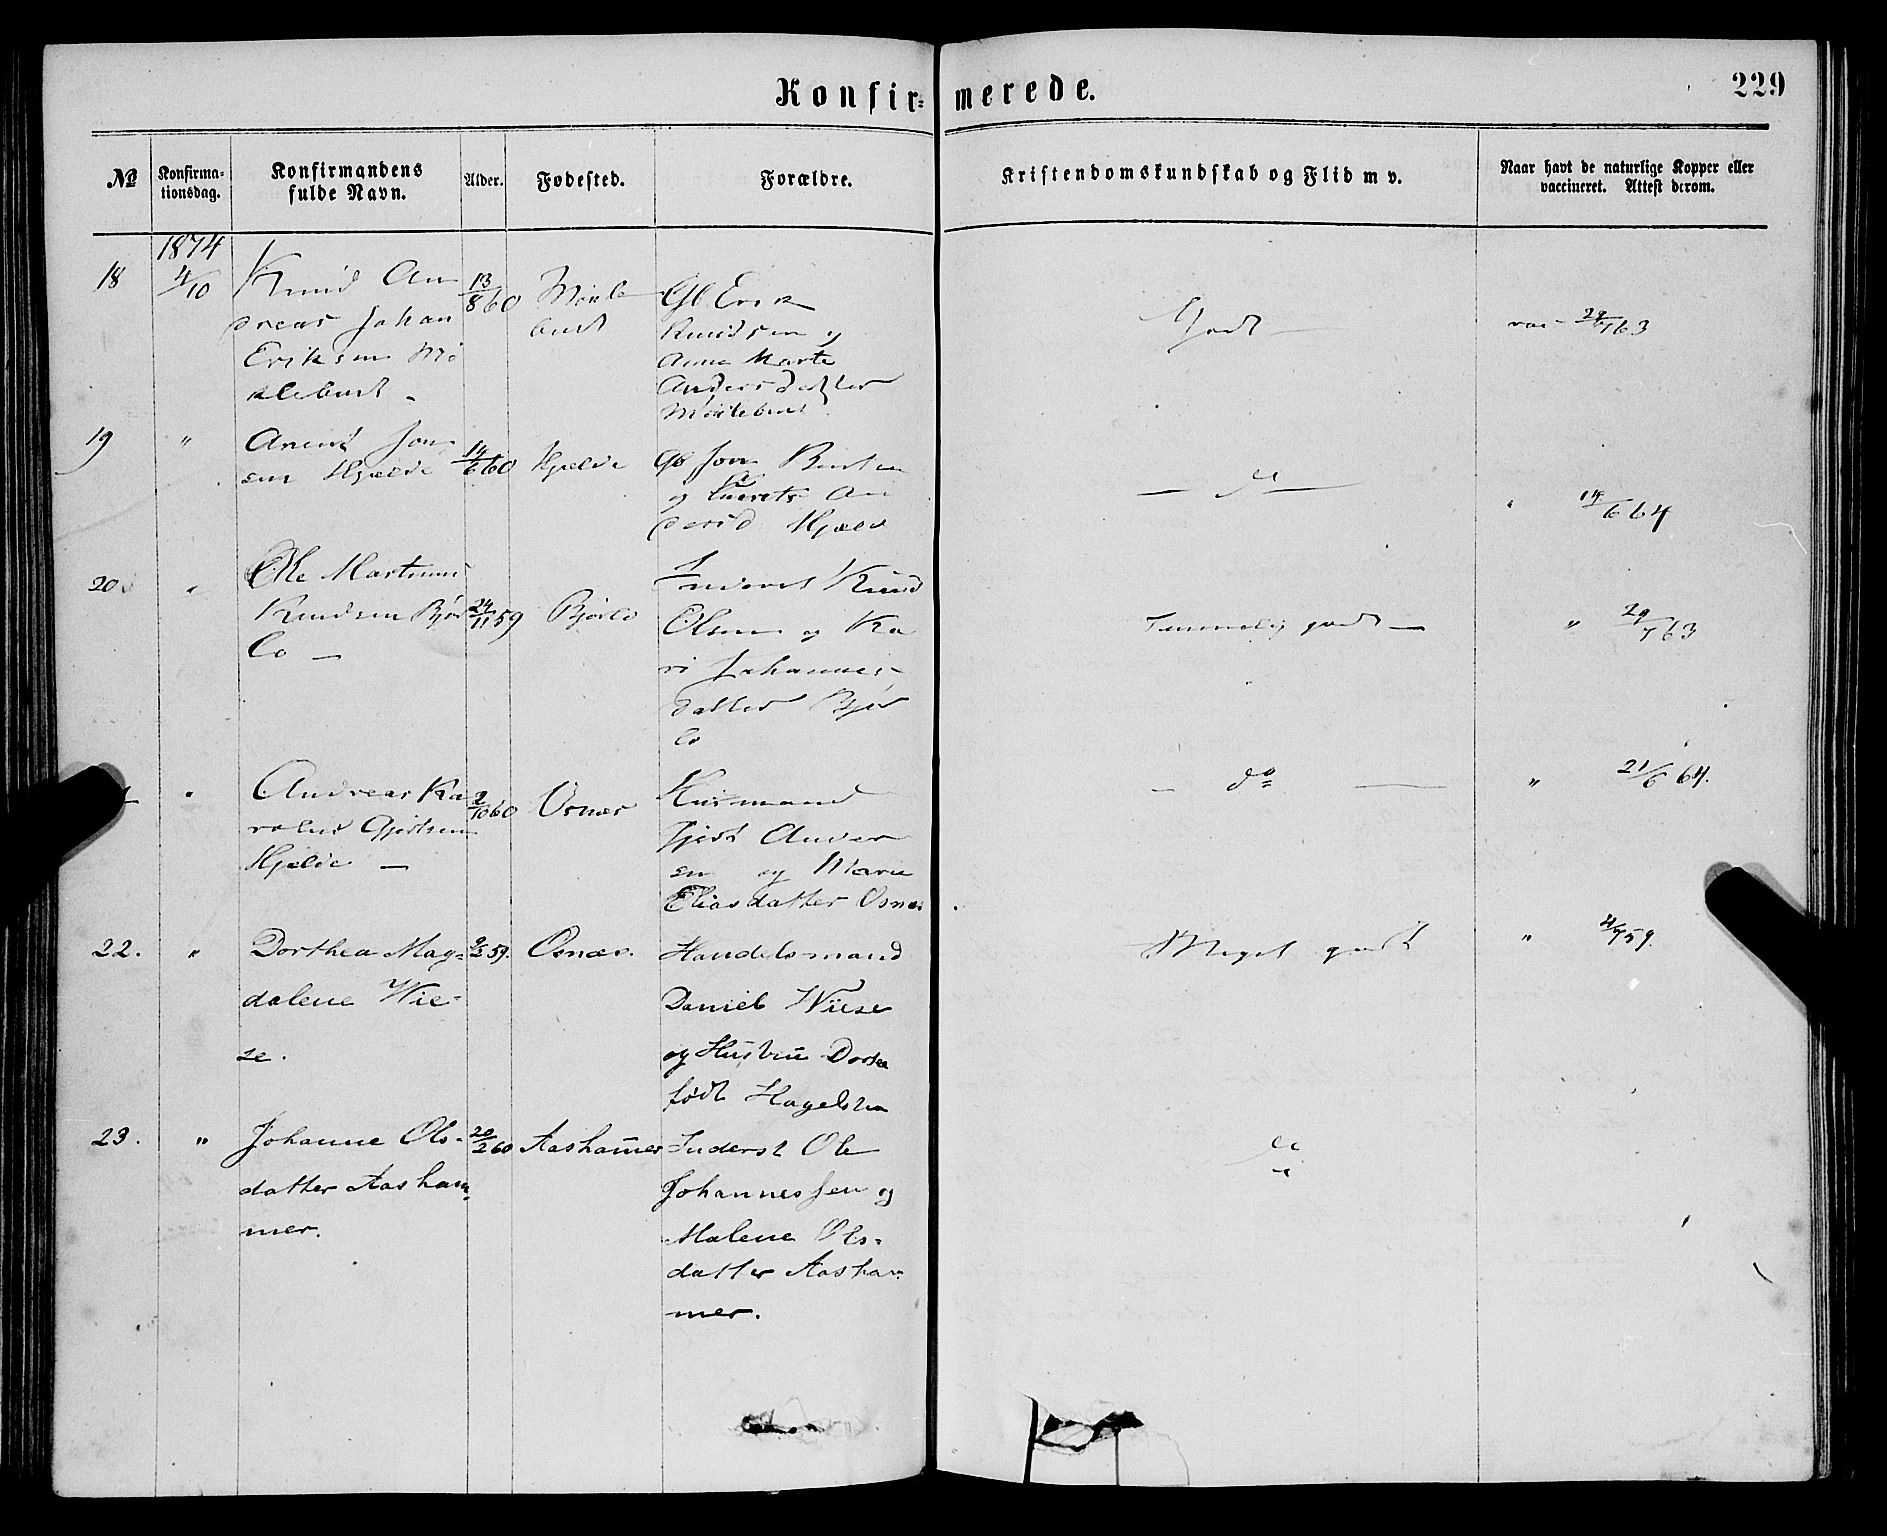 Konfir- merede.
229
№
Konfirma-
tionsdag.
Konfirmandens
fulde Navn.
Alder.
Fødested.
Forældre.
Kristendomskundskab og Flid m v.
Naar havt de naturlige Kopper eller
vaccineret. Attest derom.
1874
18 4/10 Knud An
dreas Johan
Eriksen Mö
klebust -
13/8 60
Mökle
bust
Gb Erik
Knudsen og
Anne Marte
Andersdatter
Möklebust
Godt
vac - 29/7 63
19 " Arent Jon
sen Hjelde
14/6 60
Hjelde
Gb Jon
og An
dersd. Hjeld
— do —
" 14/6 64
20 " Ole Martinus
Knudsen Bjør
lo —
24/11 59
Bjørlo
Inderst Knud
Olsen og Ka
ri Johannes
datter Bjør
lo
Temmelig godt —
" 29/7 63
" Andreas Ka
rolus Gjertsen
Hjelde —
2/10 60
Osnes
Husmand
Gjert Ander
sen og Marie
Eliasdatter Osnes.
— do —
" 21/6 64.
22. " Dorthea Mag-
dalene Wie-
se.
9/2 59.
Osnæs.
Handelsmand
Daniel Wiese
og Hustru Dorthea
født Hagelsten
Meget godt
" 59.
23. " Johanne Ols-
datter Aasham-
mer.
20/2 60
Aashamer
Inderst Ole
Johannessen og
Malene Ols-
datter Aasham
mer.
do